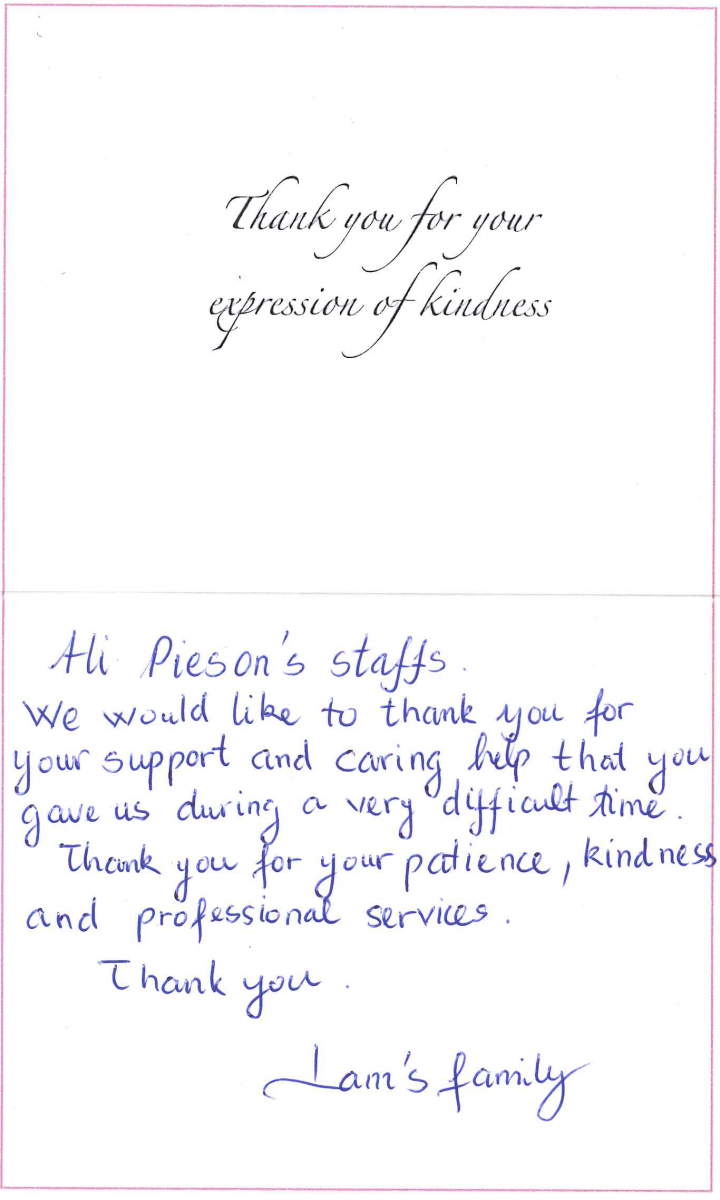 Thank you for your
expression of kindness
Hi Pieson's staffs.
We would like to thank you for
your support and caring help that you
gave us during a very difficult time.
Thank you for your patience, kindness
and professional services.
Thank you.
Lam's family